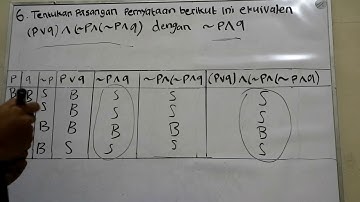 6. Tentukan Pasangan Pernyataan berikut ini ekuivalen
(p∨q) ∧ (~p∧(~p∧q) dengan ~p∧q
P q ~p p∨q ~p∧q ~p∧(~p∧q) (p∨q)∧(~p∧(~p∧q))
B B S B S S S
S B S S S
B B B B B
B S S S S